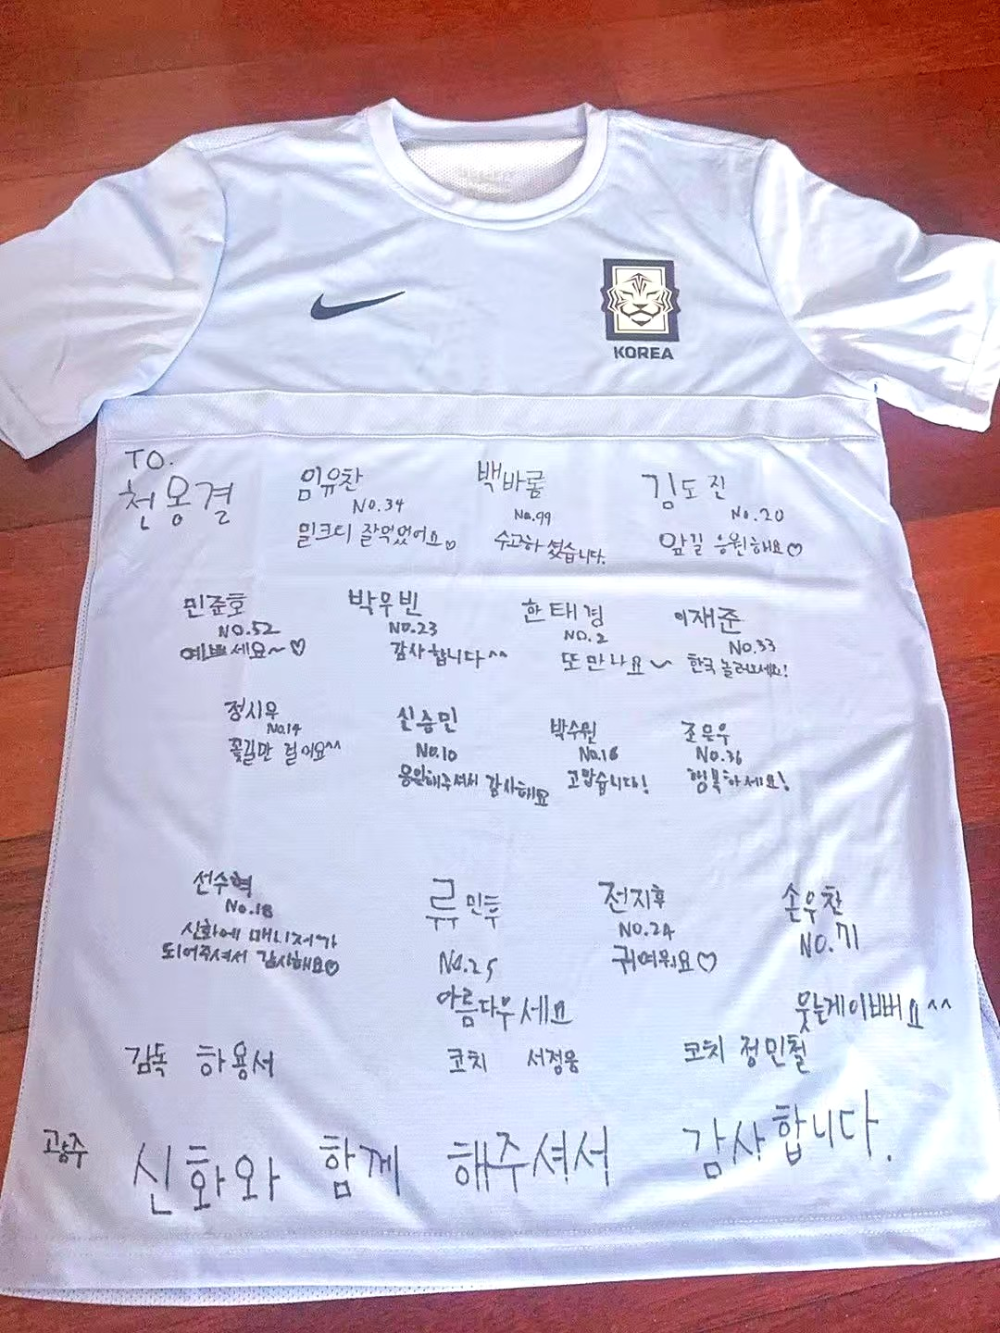 KOREA
TO.
천몽결
임유찬
NO.34
밀크티 잘먹었어요♡
백바롬
No.99
수고하셨습니다.
김도진
No.20
앞길 응원해요♡
민준호
NO.52
예쁘세요~♡
박우빈
NO.23
감사합니다^^
한태경
NO.2
또 만나요~
이재준
NO.33
한국 놀러오세요!
정시우
No.14
꽃길만 걸어요^^
신승민
No.10
응원해주셔서 감사해요
박수원
No.16
고맙습니다!
조은우
No.36
행복하세요!
선수혁
No.18
신화에 매니저가
되어주셔서 감사해요♡
류민두
No.25
아름다우세요
전지후
NO.24
귀여워요♡
손우찬
NO.71
웃는게이뻐요^^
감독 하용서
코치 서정웅
코치 정민철
광주 신화와 함께 해주셔서 감사합니다.